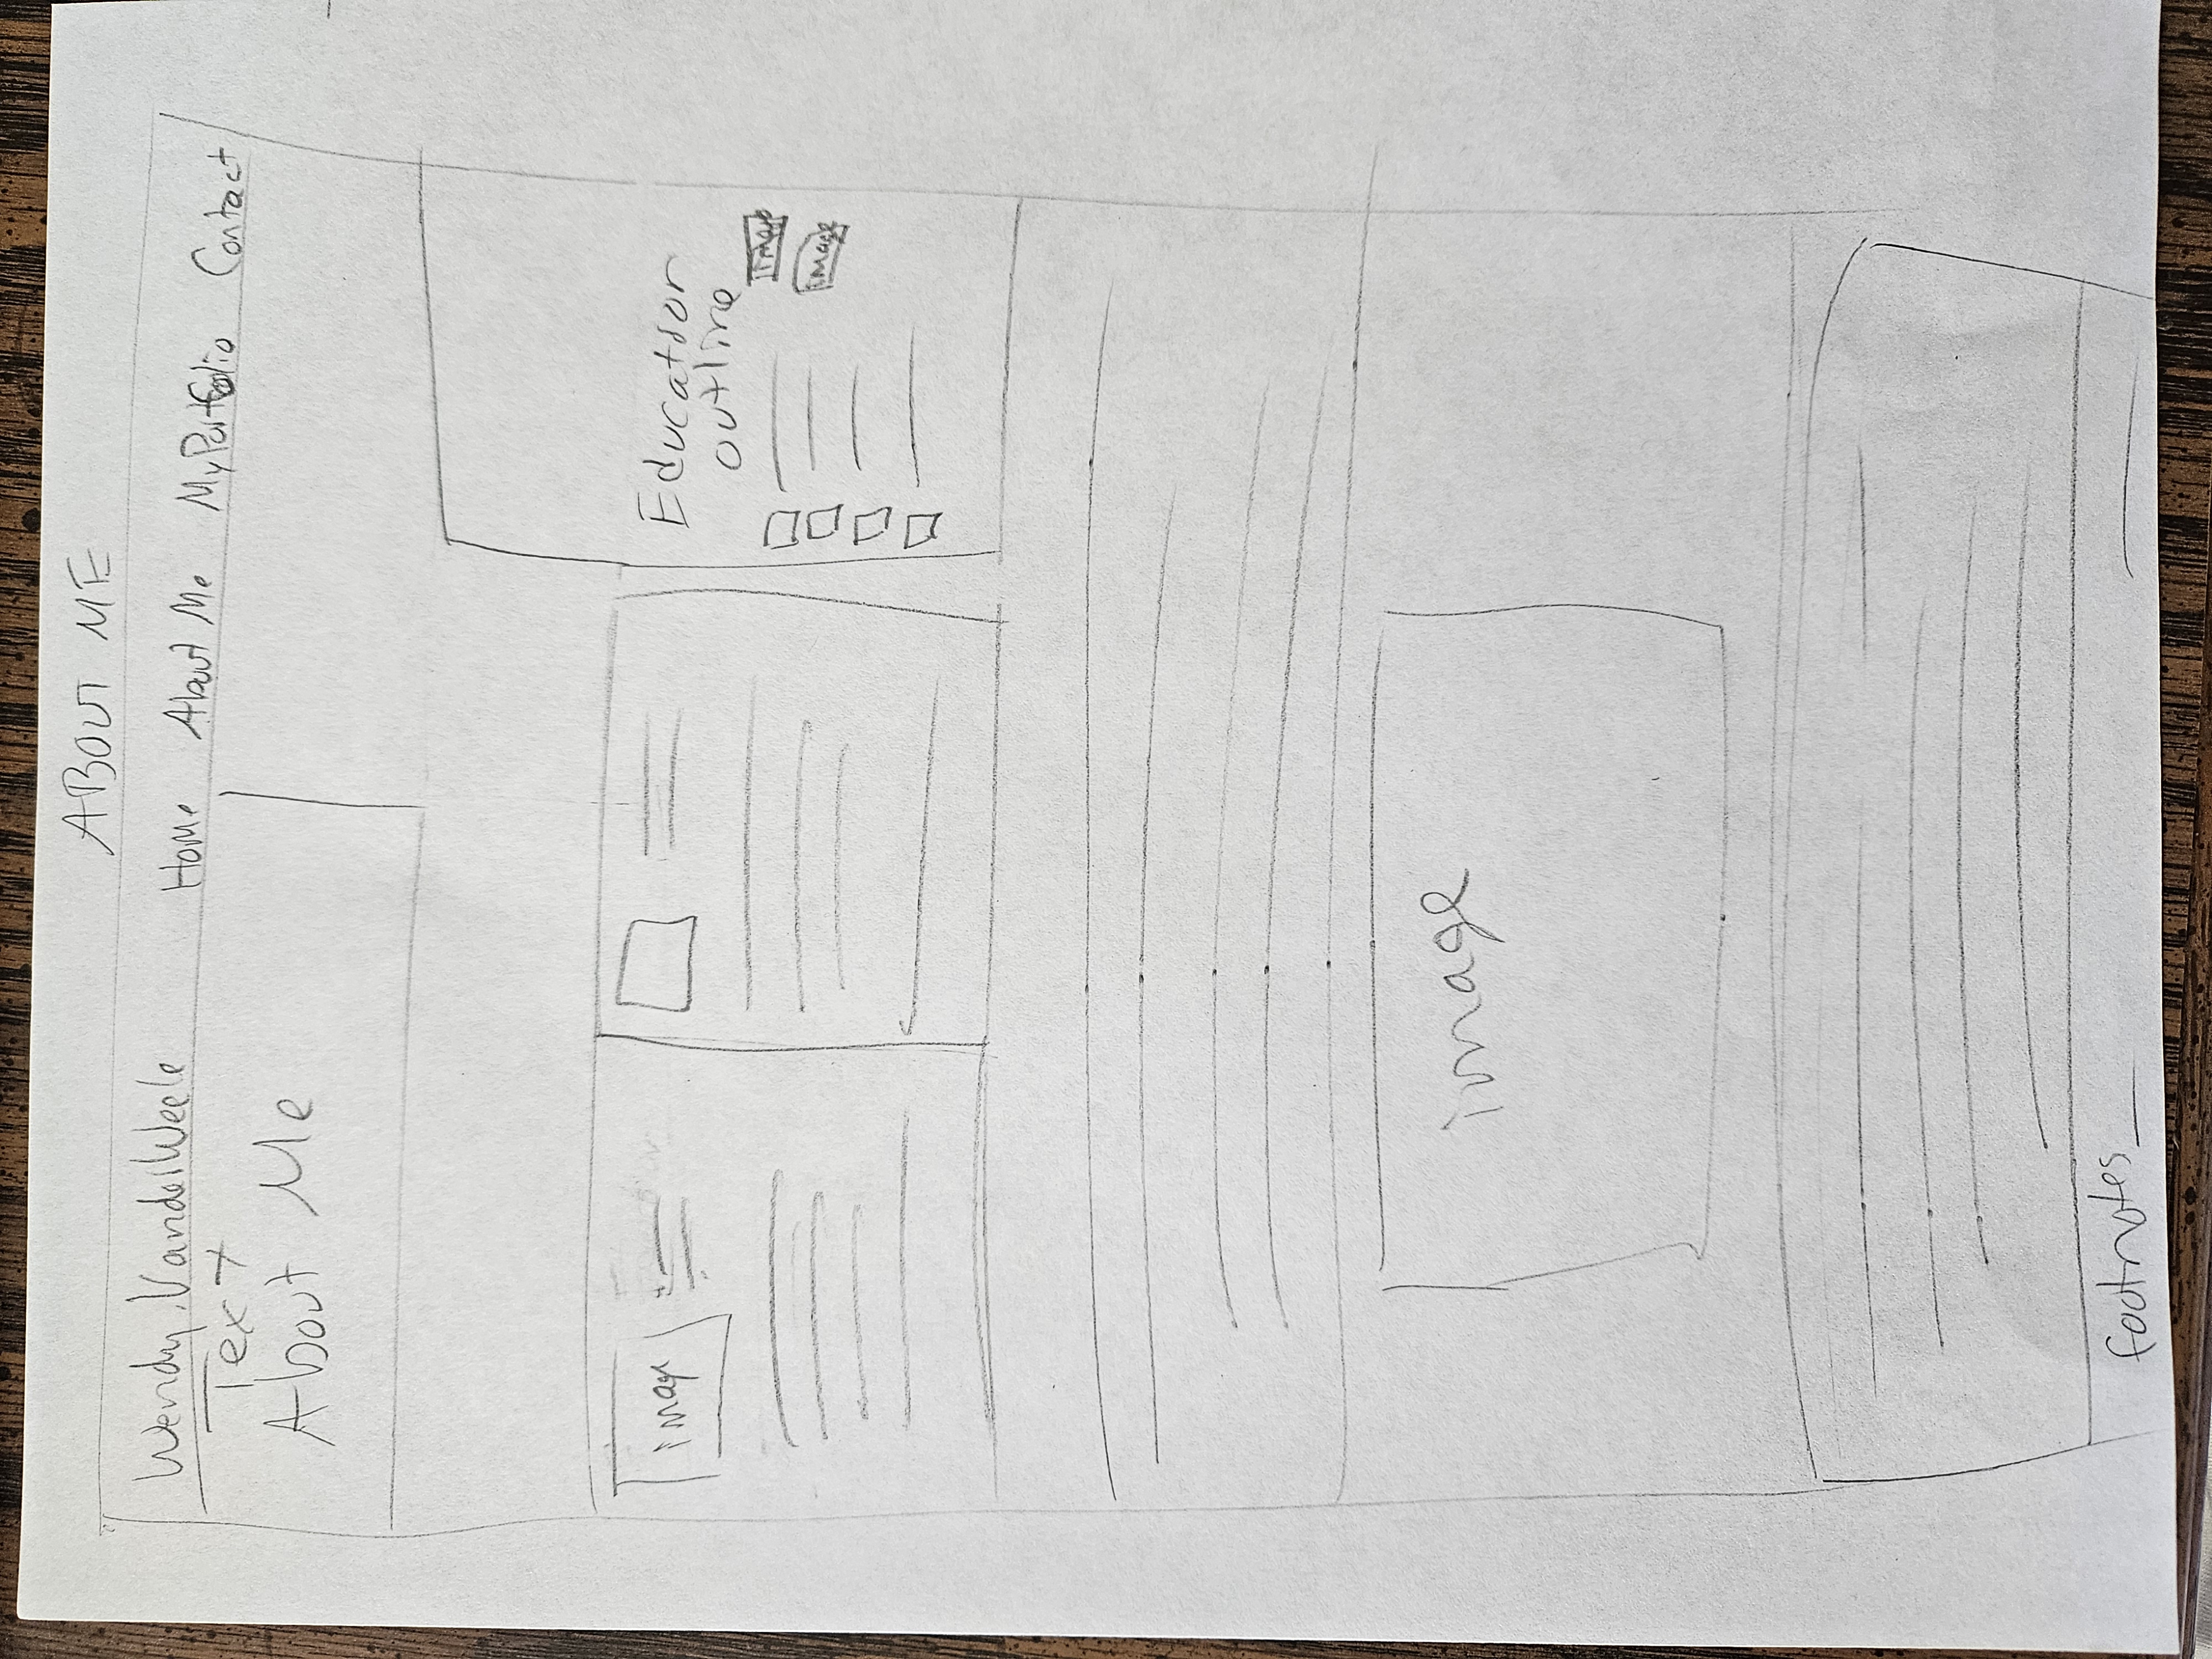 ABOUT ME
Wendy VanderWeele Home About Me My Portfolio Contact
Text
About Me
image
Education
outline
image
image
image
footnotes